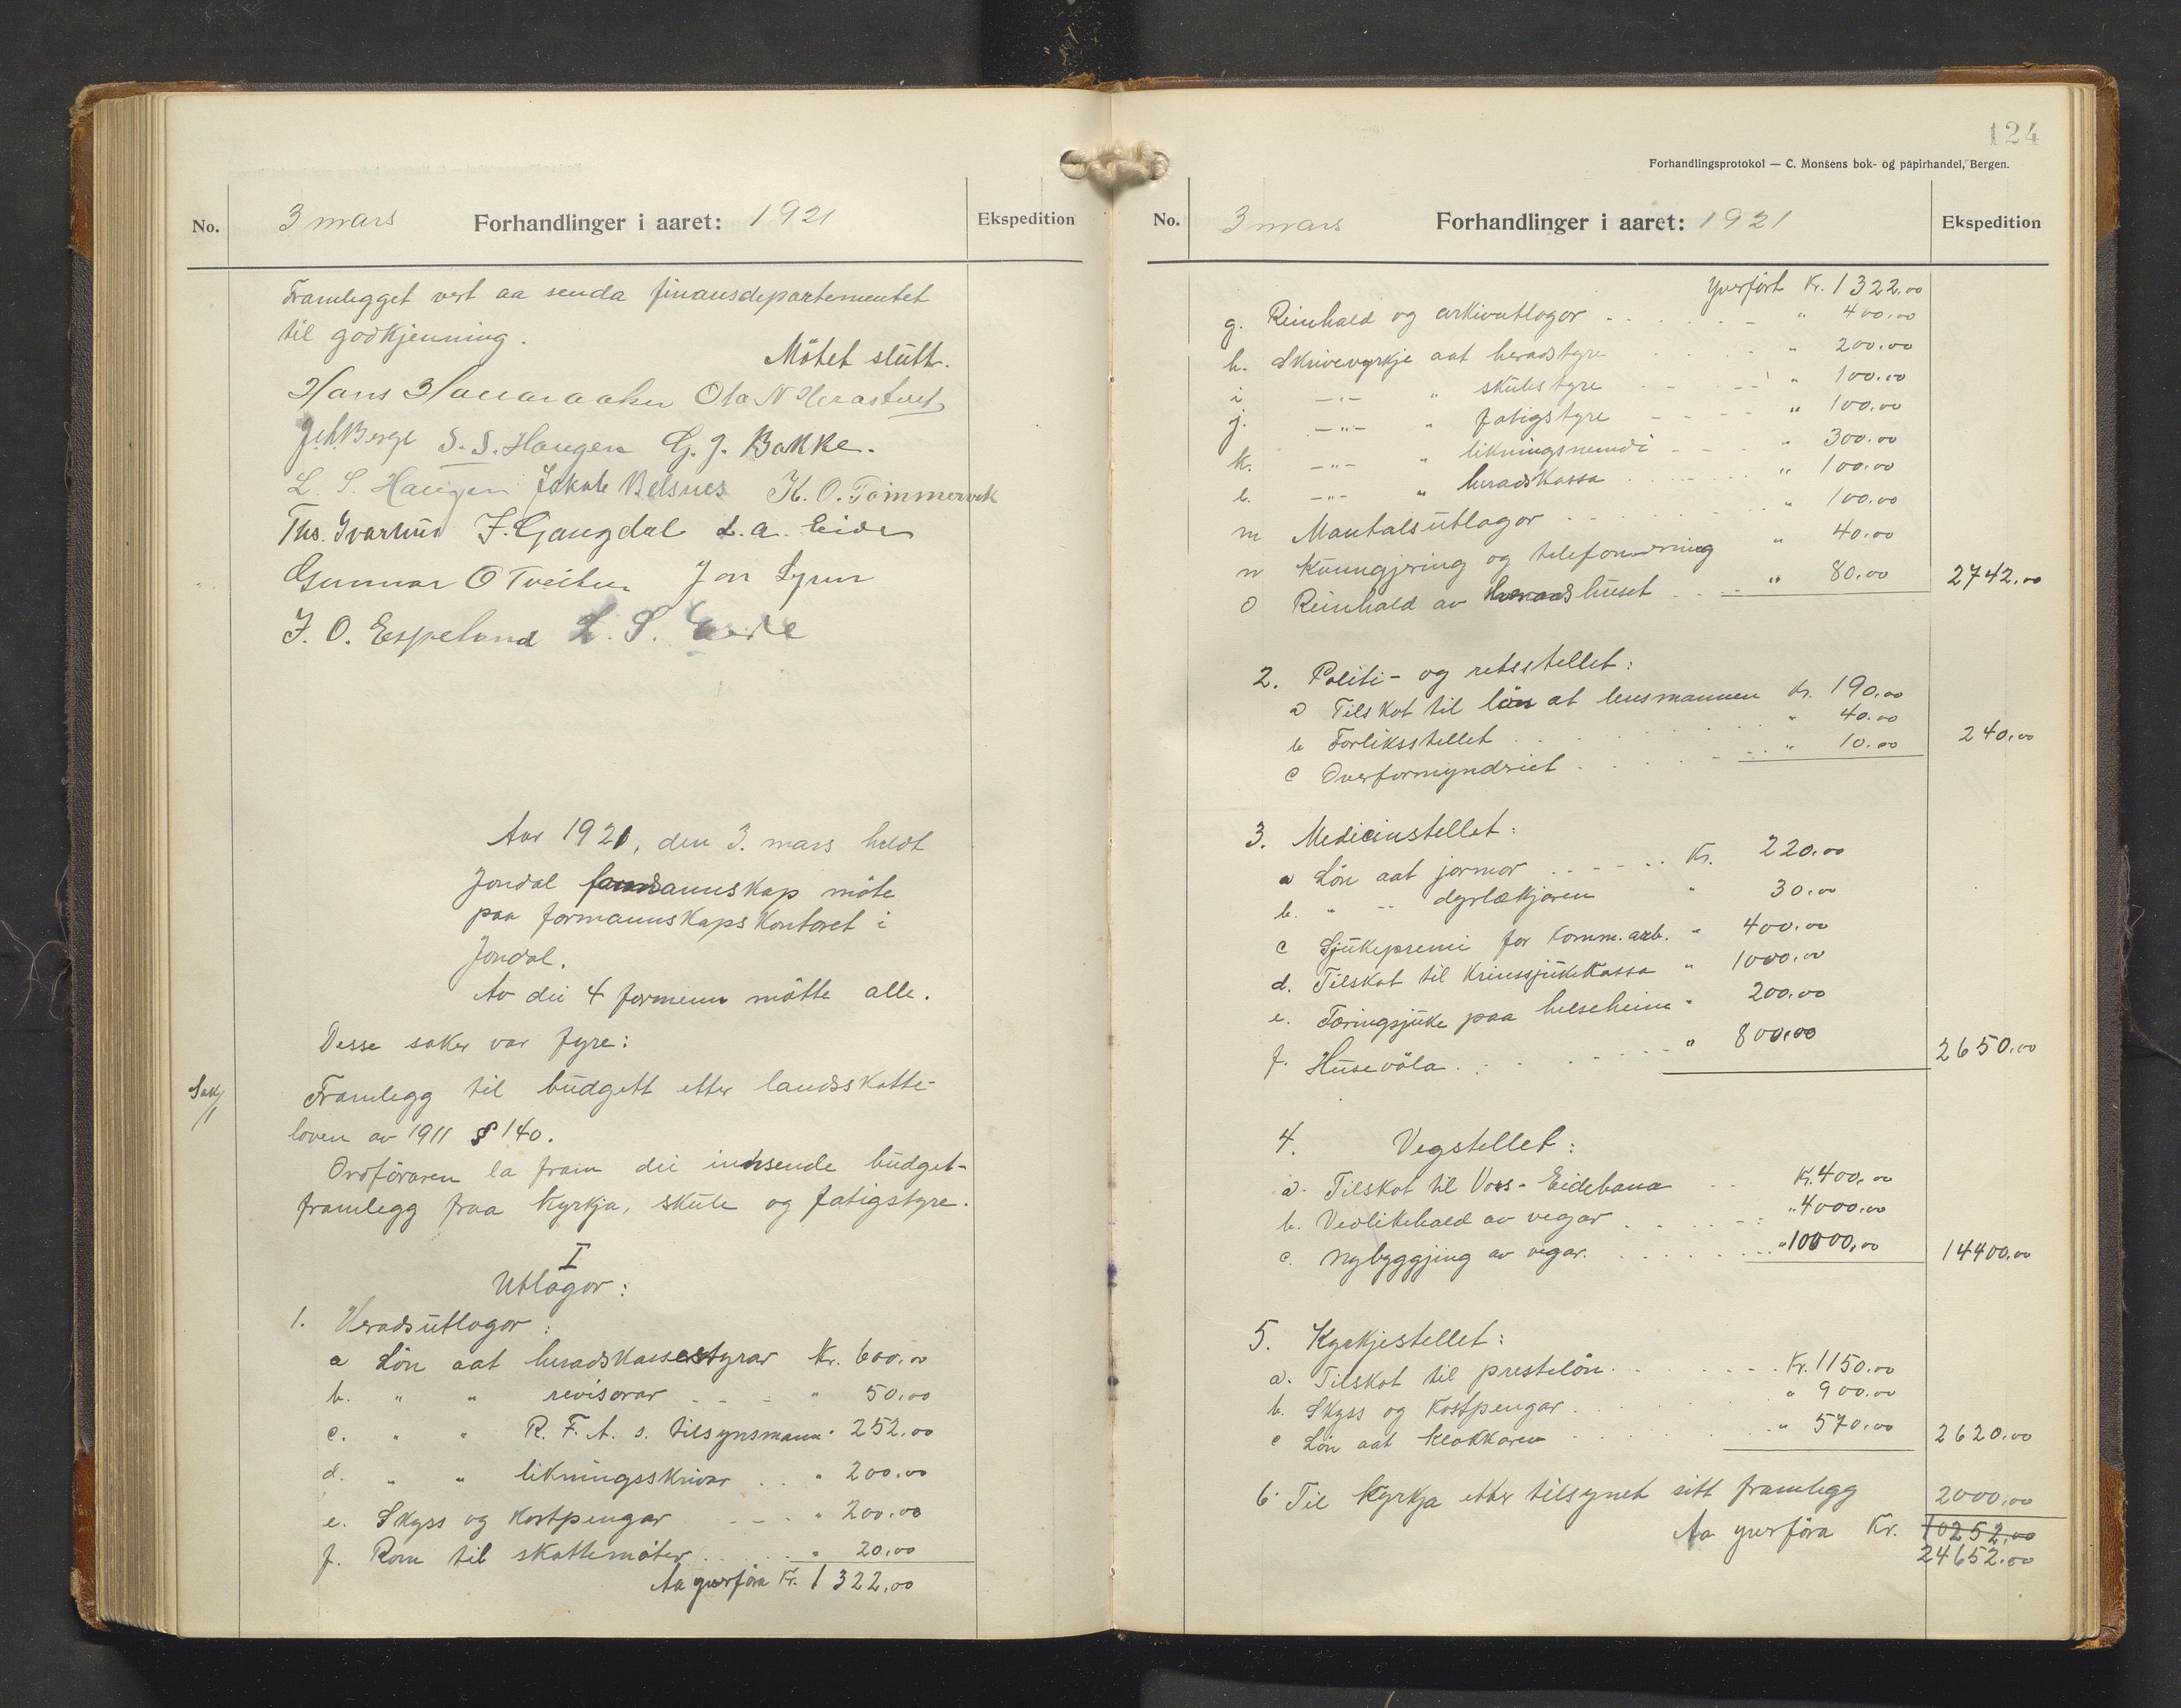 No.
3 mars
Forhandlinger i aaret: 1921
Ekspedition
Framlegget vert aa senda finansdepartementet
til godkjenning.
Mötet slutt.
Hans Ola N
Joh Berge S. S. Haugen G. J. Bakke.
L. S. Haugen Jakob Belsnes K. O. Tömmervik
Ths. Ivarhus J. Gangdal L. A. Eide
Gunnar O Tveiten Jon
J. O. Espeland L. S. Eide
Aar 1921, den 3. mars heldt
Jondal formannskap möte
paa formannskapskontoret i
Jondal.
Av dei 4 formenn mötte alle.
Desse saker var fyre:
Sak 1
Framlegg til budgett etter landsskatte-
loven av 1911 § 140.
Ordföraren la fram dei innsende budget-
framlegg fraa kyrkja, skule og fatigstyre.
I
Utlogor:
1. Heradsutlogor:
a Lön aat heradskassestyrar Kr. 600,00
b. " " revisorar " 50,00
c. " " R. F. A. s. tilsynsmann " 252,00
d. " " likningsskrivar " 200,00
e. Skyss og kostpengar " 200,00
f. Rom til skattemöter " 20,00
Aa yverföra Kr. 1322,00
124
Forhandlingsprotokol — C. Monsens bok- og papirhandel, Bergen.
No.
3 mars
Forhandlinger i aaret: 1921
Ekspedition
Yverfört Kr. 1322,00
g. Reinhald og arkivutlogor " 400,00
h. Skrivevyrkje aat heradstyre " 200,00
i —"— " skulestyre " 100,00
j. —"— " fatigstyre " 100,00
k. —"— " likningsnemdi " 300,00
l. —"— " heradskassa " 100,00
m Mantalsutlogor " 100,00
n Kunngjering og telefonering " 40,00
o Reinhald av heradshuset " 80,00 2742,00
2. Politi- og retsstellet:
a Tilskot til lön at lensmannen Kr. 190,00
b Forliksstellet " 40,00
c Overformyndriet " 10,00 240,00
3. Medicinstellet:
a Lön aat jormor Kr. 220,00
b. " " dyrlækjaren " 30,00
c Sjukepremi for komm. arb. " 400,00
d. Tilskot til krinssjukekassa " 1000,00
e. Tæringsjuke paa helseheim " 200,00
f. Husevöla " 800,00 2650,00
4. Vegstellet:
a. Tilskot til Voss-Eidebana Kr. 400,00
b. Vedlikehald av vegar " 4000,00
c. Nybyggjing av vegar. " 10000,00 14400,00
5. Kyrkjestellet:
a. Tilskot til prestelön Kr. 1150,00
b. Skyss og kostpengar " 900,00
c Lön aat klokkaren " 570,00 2620,00
6. Til kyrkja etter tilsynet sitt framlegg 2000,00
Aa yverföra Kr. 10252,00
24652,00